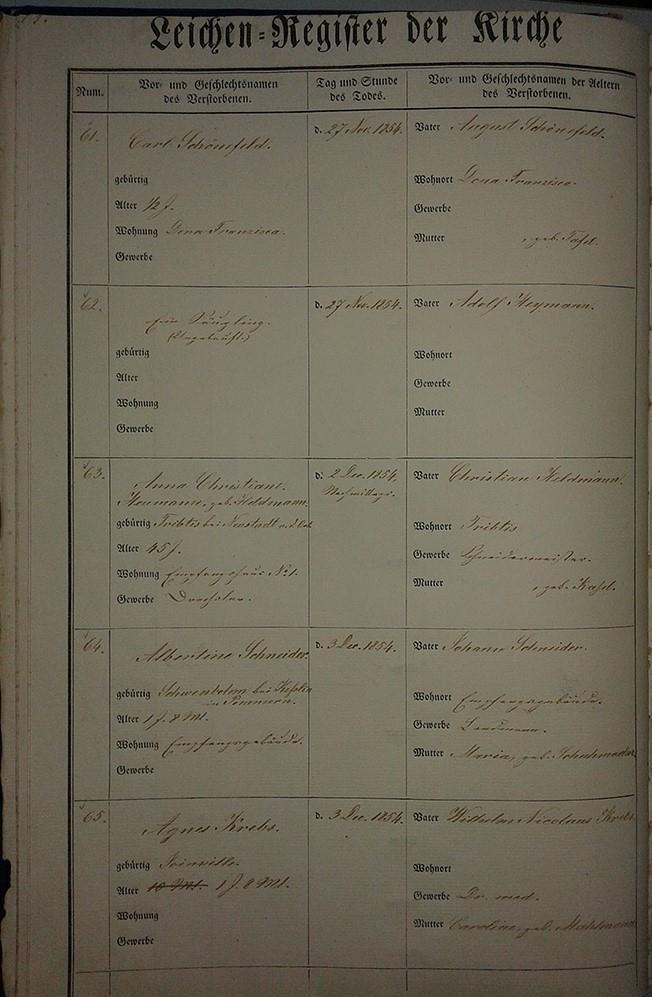 Leichen-Register der Kirche
Num.
Vor- und Geschlechtsnamen
des Verstorbenen.
Tag und Stunde
des Todes.
Vor- und Geschlechtsnamen der Aeltern
des Verstorbenen.
61.
Carl Schönefeld.
gebürtig
Alter 12 J.
Wohnung Dona Franzisca.
Gewerbe
d. 27 Nov. 1854.
Vater August Schönefeld.
Wohnort Dona Franzisca.
Gewerbe
Mutter , geb.
62.
Ein Säugling.
(Ungetauft.)
gebürtig
Alter
Wohnung
Gewerbe
d. 27 Nov. 1854.
Vater Adolf Heymann.
Wohnort
Gewerbe
Mutter
63.
Anna Christiane
Neumann, geb. Heldmann.
gebürtig Triblis bei Neustadt
Alter 45 J.
Wohnung Empfangshaus No 1.
Gewerbe Drechsler.
d. 2 Dec. 1854,
Nachmittags.
Vater Christian Heldmann.
Wohnort Triblis
Gewerbe Schneidermeister.
Mutter , geb.
64.
Albertine Schneider.
gebürtig bei
in Pommern.
Alter 1 J. 8 Mt.
Wohnung Empfangsgebäude.
Gewerbe
d. 3 Dec. 1854.
Vater Johann Schneider.
Wohnort Empfangsgebäude.
Gewerbe Landmann.
Mutter Maria, geb. Schuhmacher
65.
Agnes Krebs.
gebürtig Joinville.
Alter 10 Mt. 1 J. 8 Mt.
Wohnung
Gewerbe
d. 3 Dec. 1854.
Vater Wilhelm Nicolaus Krebs
Wohnort
Gewerbe Dr. med.
Mutter Caroline, geb. Mahlmann